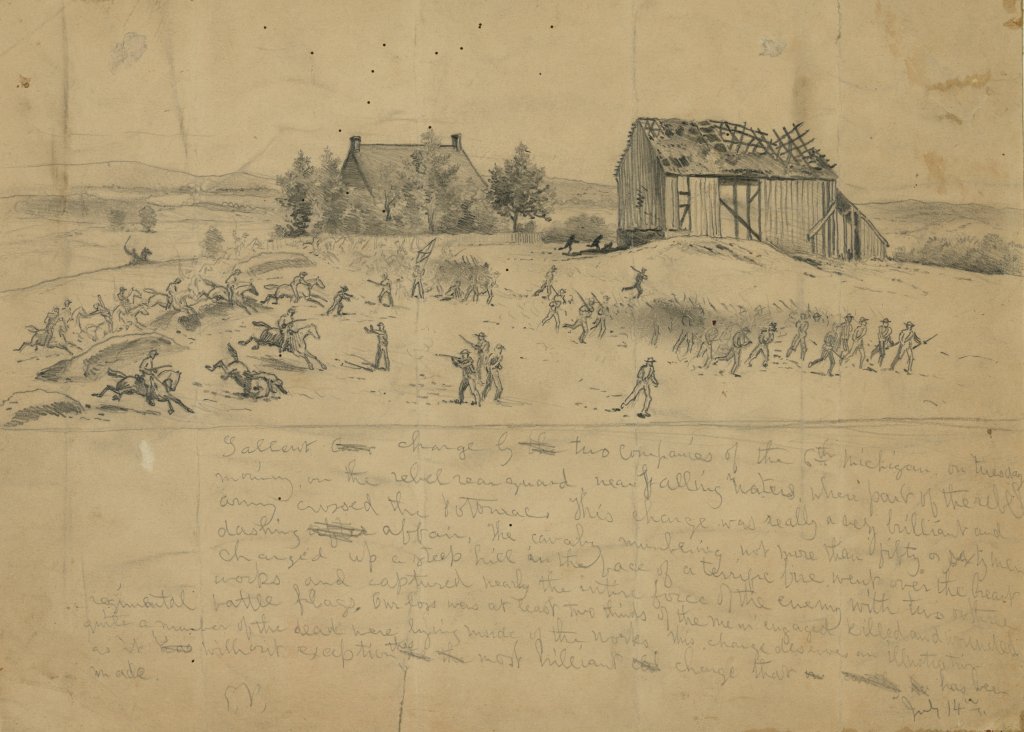 Gallent charge by two companies of the 6th Michigan, on tuesday
morning on the rebel rear guard, near Falling Waters, where part of the rebel
army crossed the Potomac. This charge was really a very brilliant and
dashing affair, The cavalry numbering not more than fifty or sixty men
charged up a steep hill in the face of a terrific fire went over the breast
works and captured nearly the intire force of the enemy with two or three
regimental battle flags. Our loss was at least two thirds of the men engaged killed and wounded
quite a number of the dead were lying inside of the works. This charge deserves an illustration
as it was without exception the most brilliant charge that has been
made.
July 14th